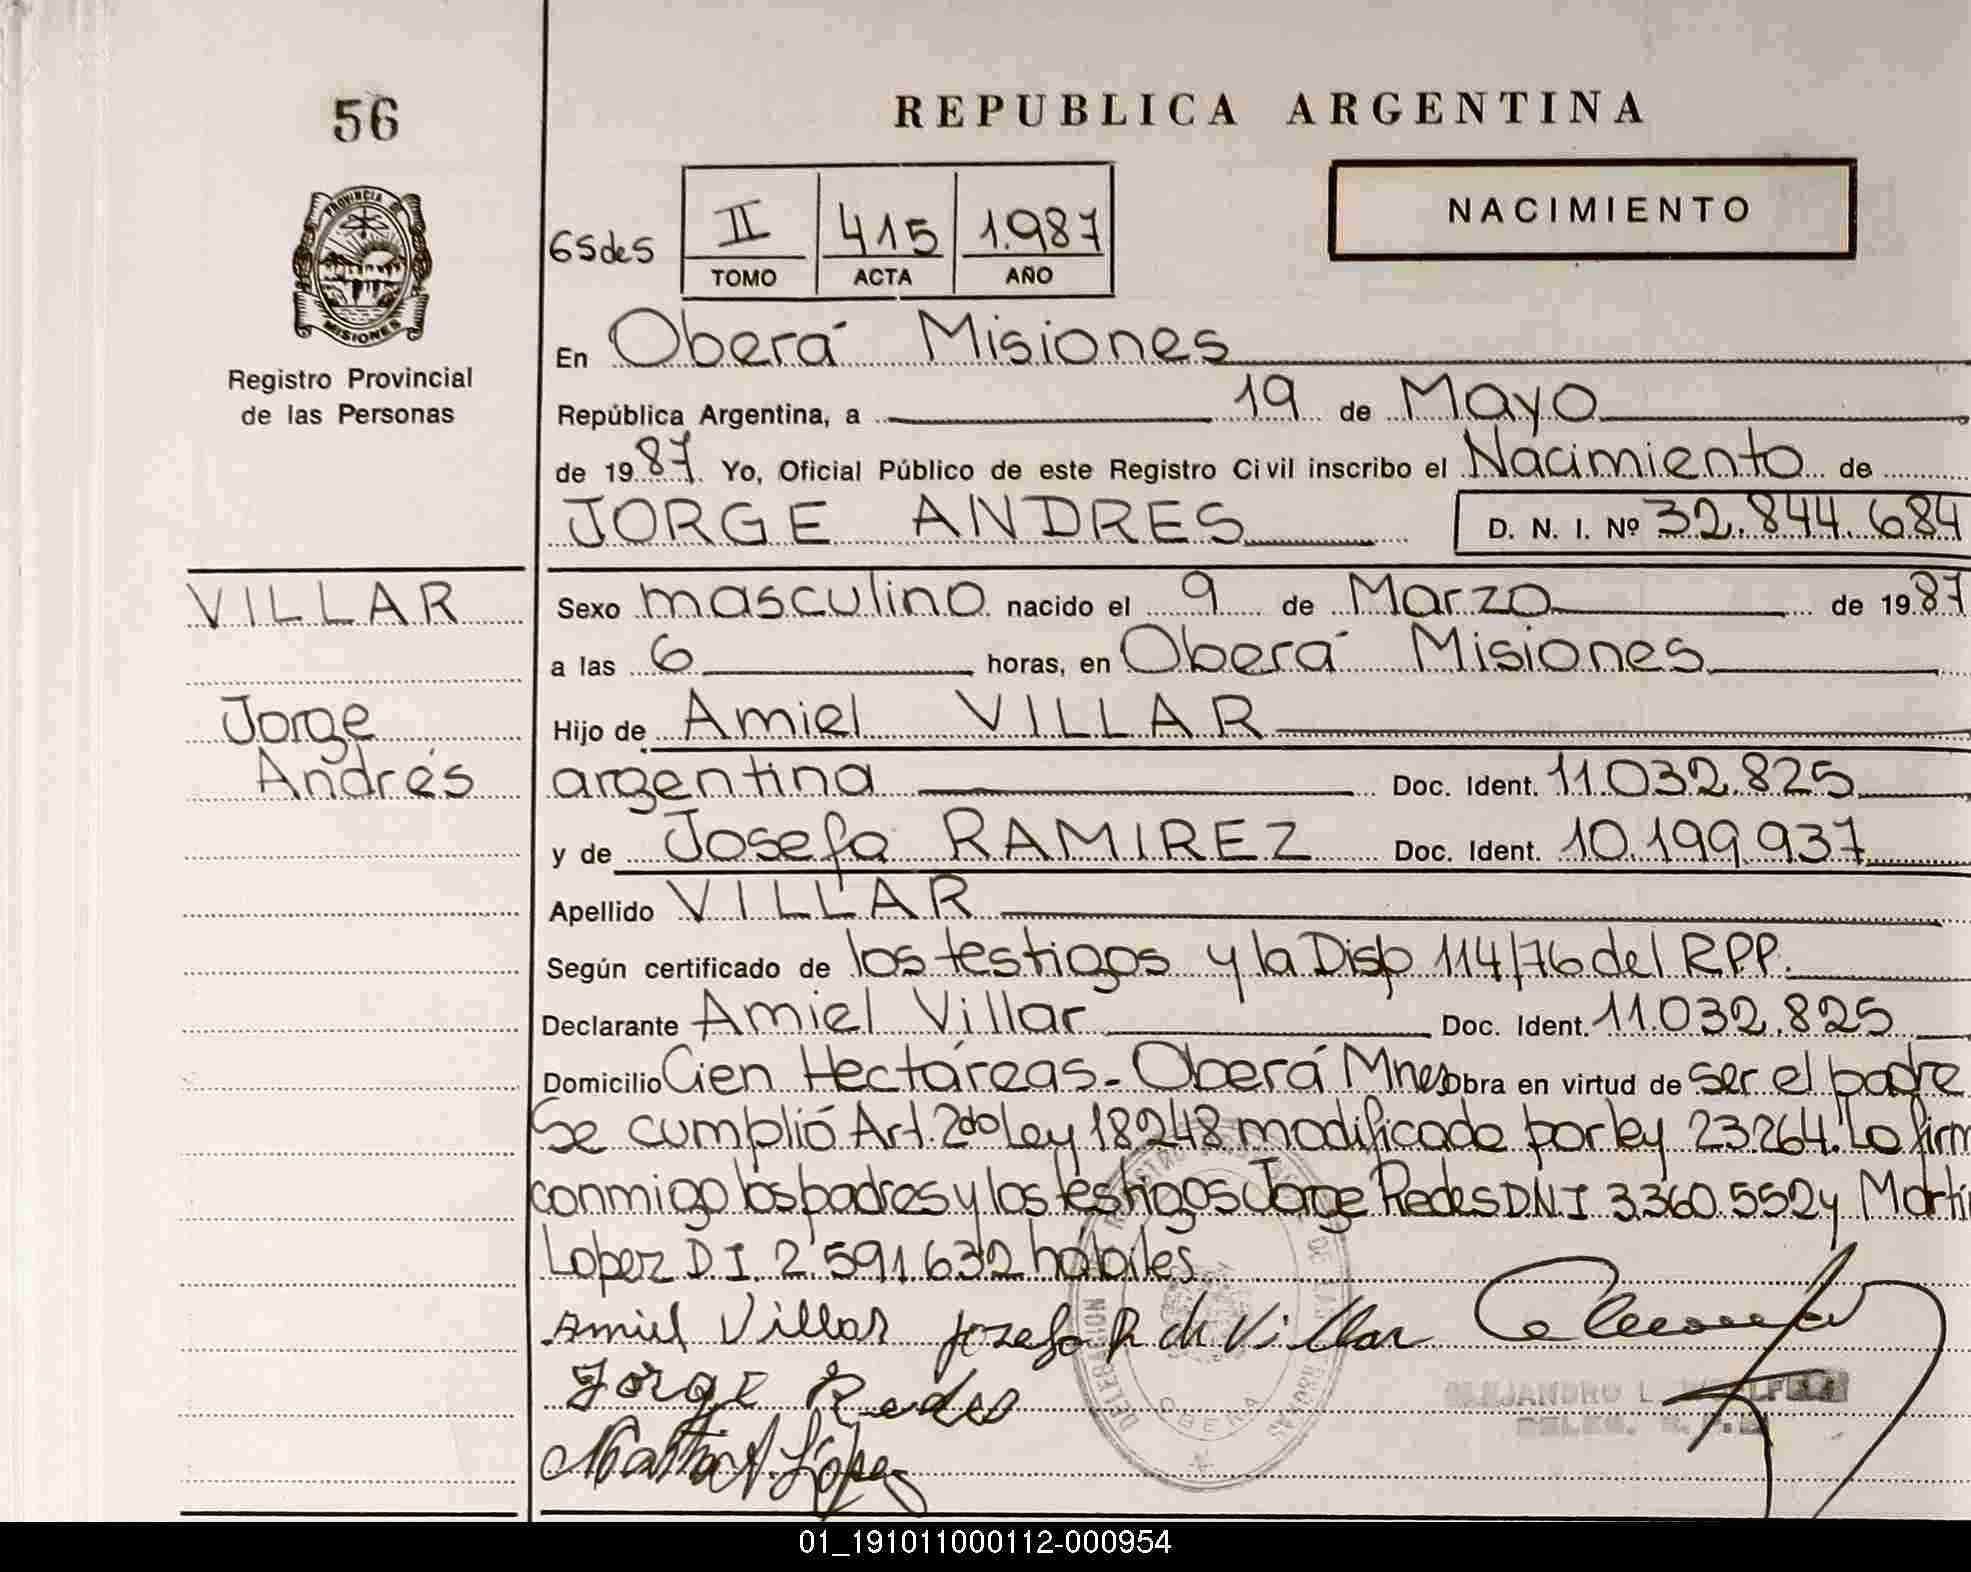 56
REPUBLICA ARGENTINA
NACIMIENTO
65des
II 415 1.987
TOMO ACTA AÑO
PROVINCIA DE
MISIONES
Registro Provincial
de las Personas
En Oberá Misiones
República Argentina, a 19 de Mayo
de 1987. Yo, Oficial Público de este Registro Civil inscribo el Nacimiento de
JORGE ANDRES D. N. I. Nº 32.844.684
VILLAR
Jorge
Andrés
Sexo masculino nacido el 9 de Marzo de 1987
a las 6 horas, en Oberá Misiones
Hijo de Amiel VILLAR
argentina Doc. Ident. 11.032.825
y de Josefa RAMIREZ Doc. Ident. 10.199.937
Apellido VILLAR
Según certificado de los testigos y la Disp 114/76 del R.P.P.
Declarante Amiel Villar Doc. Ident. 11.032.825
Domicilio Cien Hectáreas - Oberá Mnes obra en virtud de ser el padre
Se cumplió Art. 2do Ley 18248 modificado por ley 23.264. Lo firm
conmigo los padres y los testigos Jorge Redes D.N.I 3.360.552 y Martí
Lopez D.I. 2.591.632 hábiles
Amiel Villar Jozefa R de Villar
Jorge Redes
Martin A. López
DELEGACION OBERA
ALEJANDRO L.
01_191011000112-000954